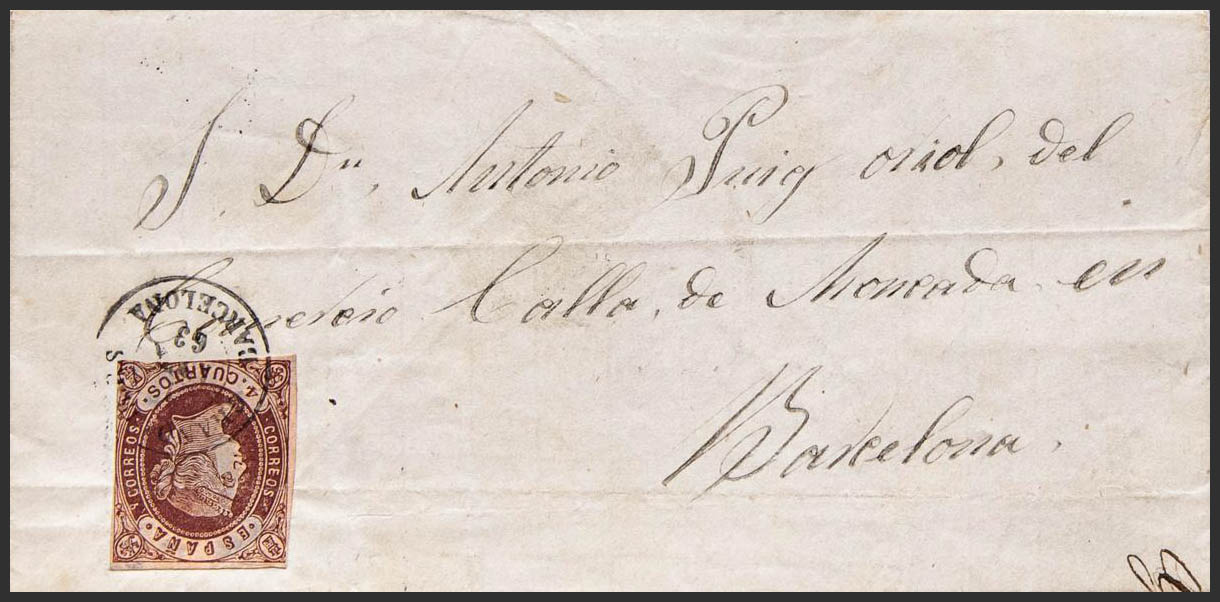 S. Dn. Antonio Puig oriol, del
Comercio Calla, de Moncada en
Barcelona.
BARCELONA
63
4. CUARTOS.
CORREOS.
Y CORREOS.
ESPAÑA